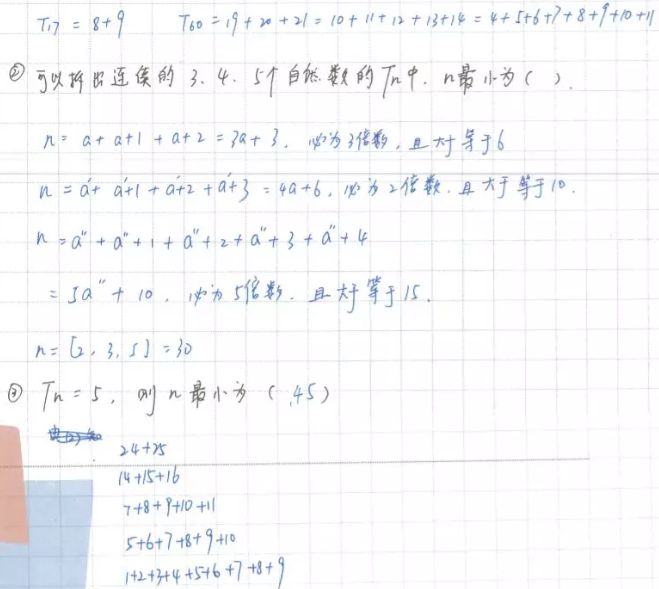 T17 = 8+9 T60 = 19+20+21 = 10+11+12+13+14 = 4+5+6+7+8+9+10+11
② 可以拆出连续的 3、4、5个自然数的Tn中, n最小为( ).
n= a+ a+1 + a+2 = 3a+3. 必为3倍数, 且大于等于6
n = a'+ a'+1 + a'+2 + a'+3 = 4a+6, 必为2倍数. 且大于等于10.
n = a"+ a"+1 + a"+2 + a"+3 + a"+4
= 5a"+ 10. 必为5倍数. 且大于等于15.
n= [2, 3, 5] =30
③ Tn = 5, 则 n最小为 ( 45)
24+25
14+15+16
7+8+9+10+11
5+6+7+8+9+10
1+2+3+4+5+6+7+8+9